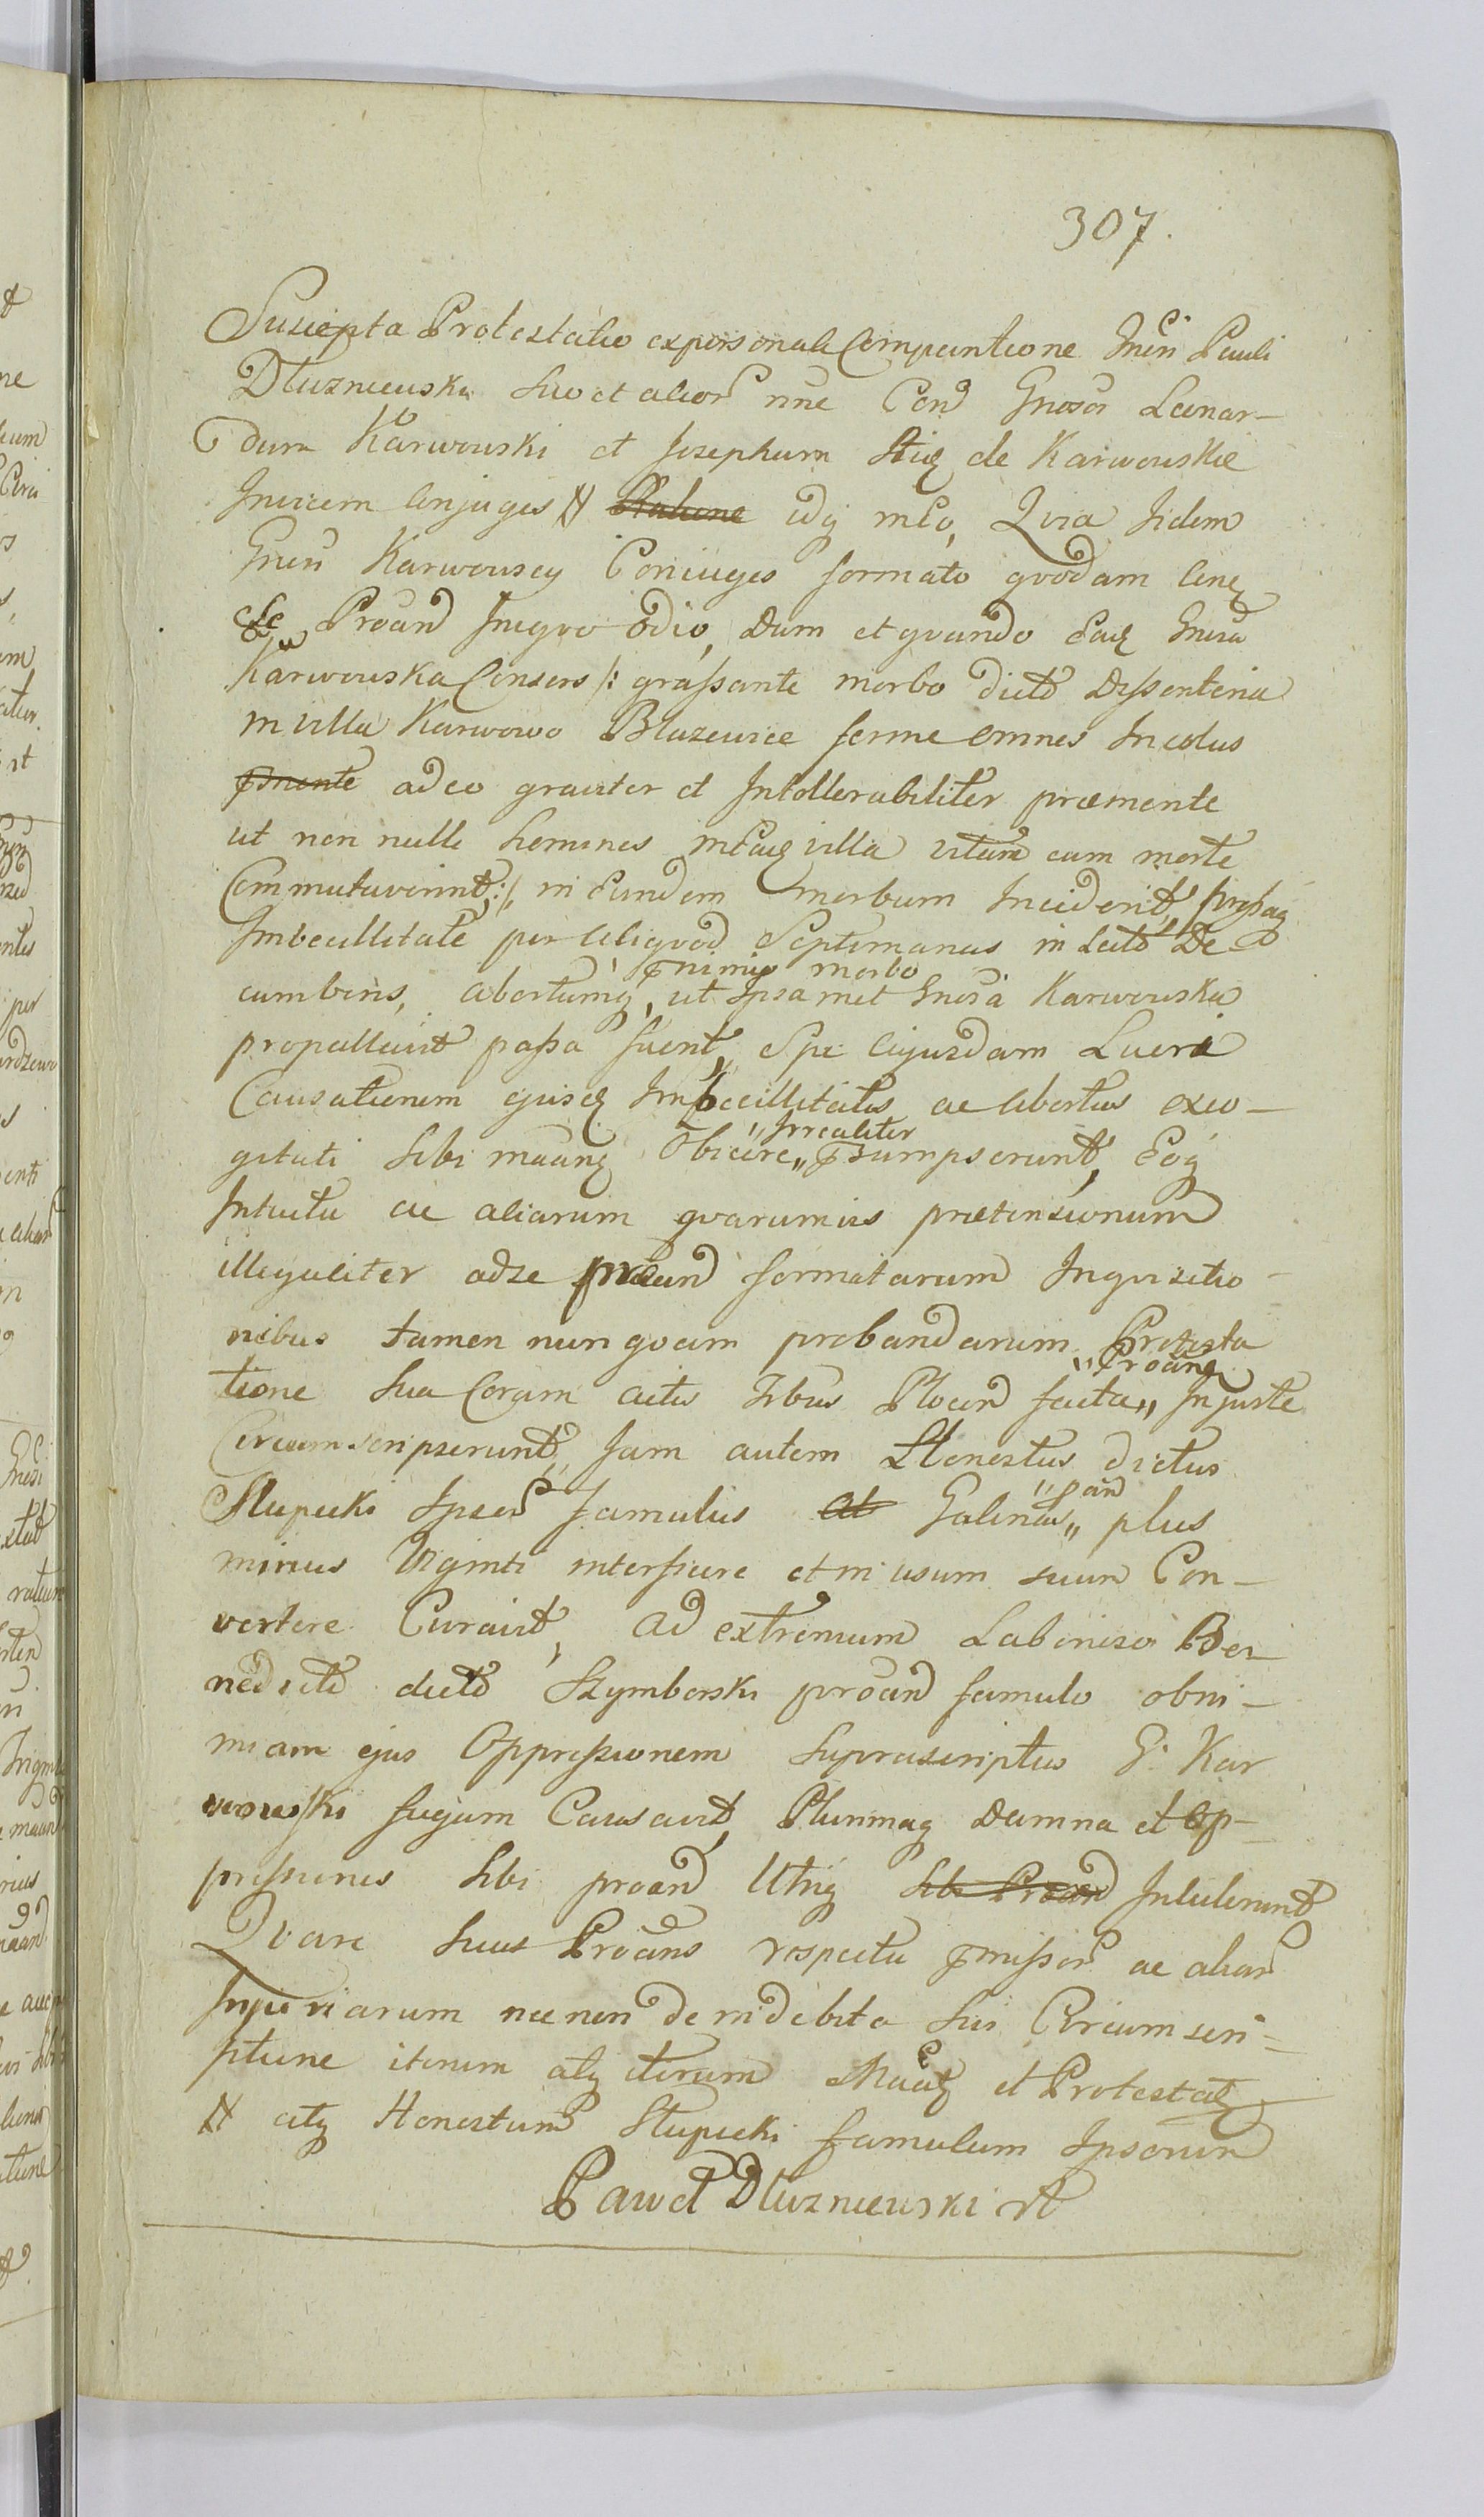 307.
Suscepta Protestatio ex personali Comparintione Gnesi Pauli
Dluzniewski suo et alior nne Con Gnosos Leonar-
dum Karwowski et Josephum Stie de Karwowskie
Invicem Conjuges N Ratione idq mto, Quia Iidem
Gnesi Karwowscy Coniuges formato qvodam Cenq
se Proand Iniqvo odio, Dum et qvando Eaq Gnosa
Karwowska Consors /: grassante morbo dicto Dissenteria
in villa Karwowo Blazewice ferme omnes Incolas
pmente adeo graviter et Intollerabiliter praemente
ut non nulli homines in Eaq villa vitam cum morte
Commutaverint :/, in Eundem morbum Inciderit, pressaq
Imbecillitate per aliqvod Septimanas in Lecto De
pnimio morbo
cumbens, abortumq, ut Ipsa met Gnosa Karwowska
propallavit passa fuerit, Spe Cujusdam Lucri
Causationem ejusq Imbecillitatis ac abortus exco-
" Irrealiter
gitati sibi maanq Obicere " psumpserunt, Eoq
Intuitu ac aliarum qvarumvis praetensionum
illegaliter ad se proand formatarum Inqvisitio-
nibus tamen nunqvam probandarum Protesta
" Proanq
tione sua Coram actis Trbus Plocen facta " Injuste
Circumscripserunt, Jam autem Honestus dictus
" pan
Slupecki Ipsor famulus at Galinas " plus
minus Viginti interficere et in usum suum Con-
vertere Curavit, Ad extremum Laborioso Be-
nedicto dicto Szymborski proand famulo ob ni-
miam ejus Oppressionem Suprascriptus G. Kar
wowski fugam Causavit, Plurimaq Damna et Op-
pressiones sibi proand Utiq sibi Proand Intulerunt
Qvare suus Proans respectu pmissor ac aliar
Injuriarum nec non de indebita sui Circumscri-
ptione iterum atq iterum Maatq et Protestatq
N atq Honestum Slupecki famulum Ipsorum
Pawel Dluzniewski